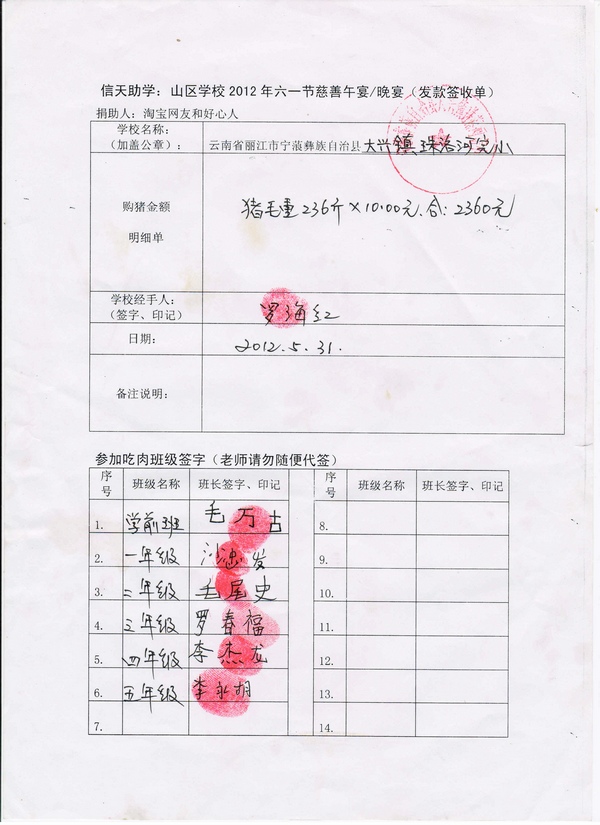 信天助学：山区学校2012年六一节慈善午宴/晚宴（发款签收单）
捐助人：淘宝网友和好心人
学校名称：
（加盖公章）：
云南省丽江市宁蒗彝族自治县大兴镇珠洛河完小
购猪金额
明细单
猪毛重236斤×10.00元.合:2360元
学校经手人：
（签字、印记）
罗海红
日期：
2012.5.31.
备注说明：
参加吃肉班级签字（老师请勿随便代签）
序号 班级名称 班长签字、印记 序号 班级名称 班长签字、印记
1. 学前班 毛万古 8.
2. 一年级 发 9.
3. 二年级 毛尾史 10.
4. 三年级 罗春福 11.
5. 四年级 李杰龙 12.
6. 五年级 李 13.
7. 14.